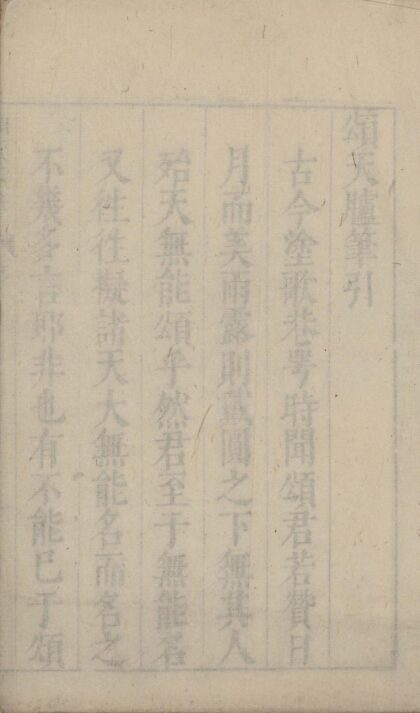 頌天臚筆引
古今塗歌巷咢時聞頌君若贊日
月而美雨露則戴圓之下無其人
殆天無能頌乎然君至于無能名
又往往擬諸天大無能名而名之
不幾多言耶非也有不能已于頌